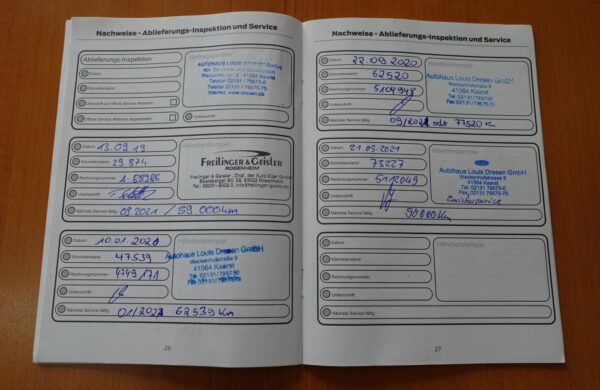 Nachweise - Ablieferungs-Inspektion und Service
Ablieferungs-Inspektion
Datum
Kilometerstand
Überprüft auf offene Service Aktionen
Offene Service Aktionen abgearbeitet
AUTOHAUS Louis Dresen GmbH
41564 Kaarst
Telefon 02131 / 79575-0
Telefax 02131 / 79575-75
Datum 13.09.19
Kilometerstand 29 874
Rechnungsnummer A-88986
Unterschrift
Nächste Service fällig 09.2021 / 59 000km
Händlerstempel
FREILINGER & GEISLER
ROSENHEIM
Freilinger & Geisler, Zndl. der Auto Eder GmbH
Datum 10.01.2020
Kilometerstand 47539
Rechnungsnummer 4749/71
Unterschrift
Nächste Service fällig 01/2022 62539 Km
Händlerstempel
Autohaus Louis Dresen GmbH
Weckenhofstraße 9
41564 Kaarst
Tel. 02131 / 795750
Fax 02131 / 7957575
26
Nachweise - Ablieferungs-Inspektion und Service
Datum 22.09.2020
Kilometerstand 62520
Rechnungsnummer
Unterschrift
Nächste Service fällig 09/2021 oder 77520 K
Händlerstempel
Autohaus Louis Dresen GmbH
Weckenhofstraße 9
41564 Kaarst
Tel. 02131 / 795750
Fax 02131 / 7957575
Datum 21.09.2021
Kilometerstand 73227
Rechnungsnummer
Unterschrift
Nächste Service fällig 90 000 Km
Händlerstempel
Ford
Autohaus Louis Dresen GmbH
Weckenhofstraße 9
41564 Kaarst
Tel. 02131 79575-0
Fax 02131 79575-75
Zwischenservice
Datum
Kilometerstand
Rechnungsnummer
Unterschrift
Nächste Service fällig
Händlerstempel
27